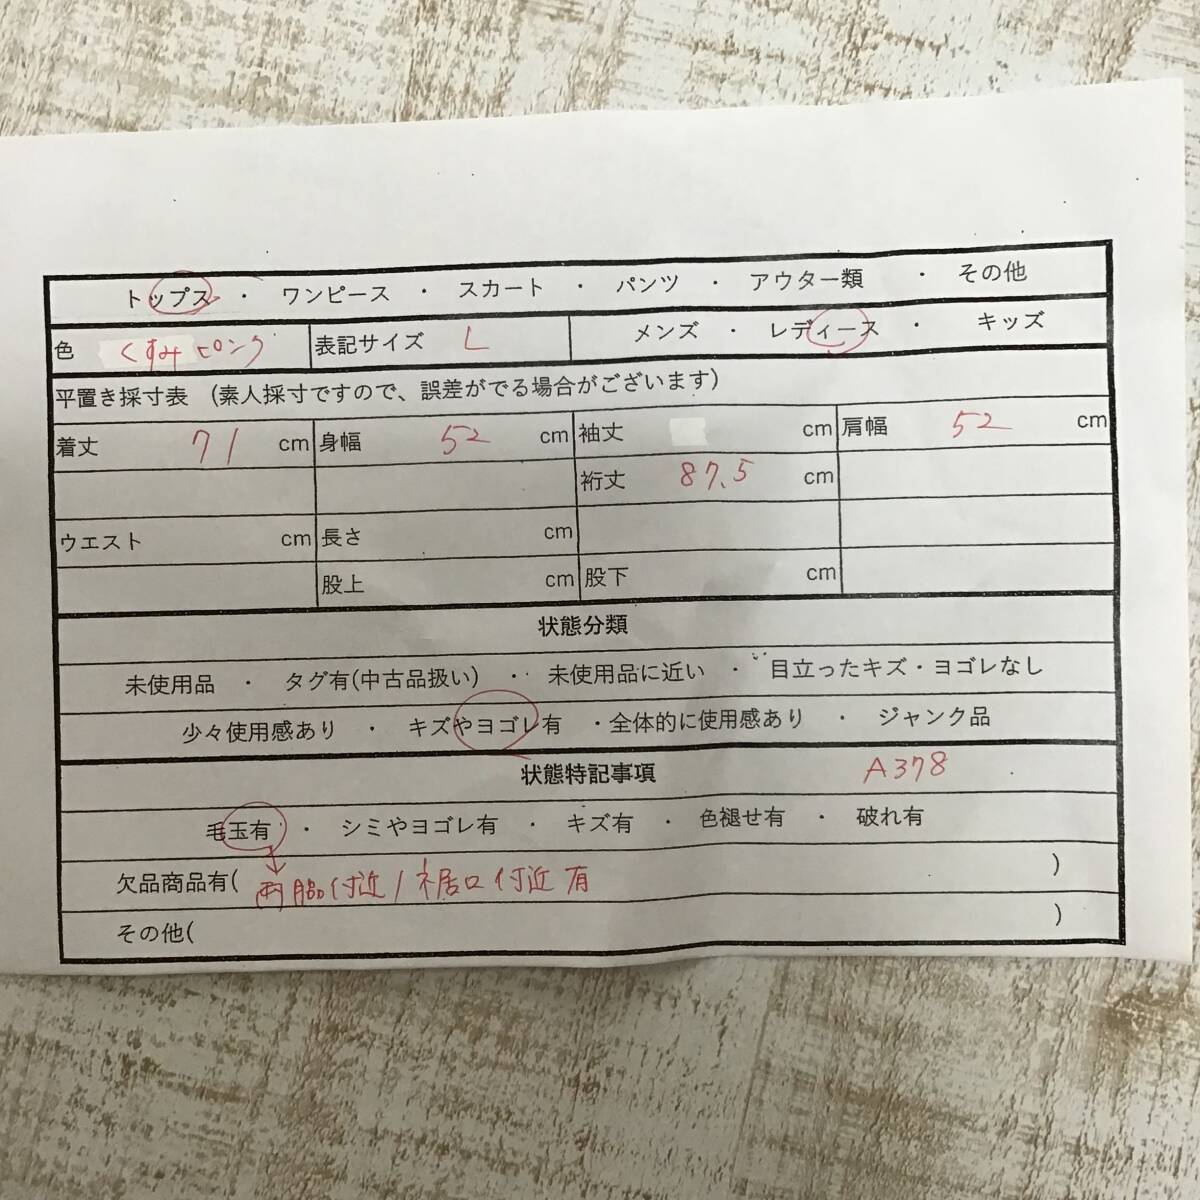 トップス ・ ワンピース ・ スカート ・ パンツ ・ アウター類 ・ その他
色 くすみピンク 表記サイズ L メンズ ・ レディース ・ キッズ
平置き採寸表 (素人採寸ですので、誤差がでる場合がございます)
着丈 71 cm 身幅 52 cm 袖丈 cm 肩幅 52 cm
裄丈 87.5 cm
ウエスト cm 長さ cm
股上 cm 股下 cm
状態分類
未使用品 ・ タグ有(中古品扱い) ・ 未使用品に近い ・ 目立ったキズ・ヨゴレなし
少々使用感あり ・ キズやヨゴレ有 ・全体的に使用感あり ・ ジャンク品
状態特記事項 A378
毛玉有 ・ シミやヨゴレ有 ・ キズ有 ・ 色褪せ有 ・ 破れ有
欠品商品有( 両脇付近/裾口付近有 )
その他( )